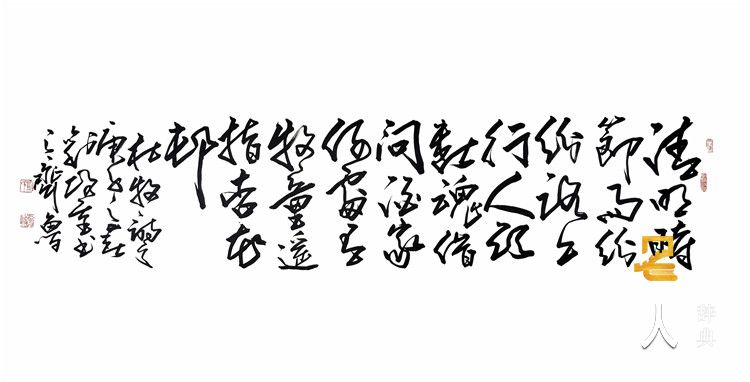 清明時
節雨紛
紛路上
行人欲
斷魂借
問酒家
何處有
牧童遙
指杏花
村
杜牧詩
庚子之春
書
齊魯
名人
辞典